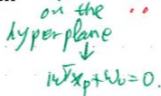 on the
hyperplane
↓
w^T x_p + w_0 = 0.